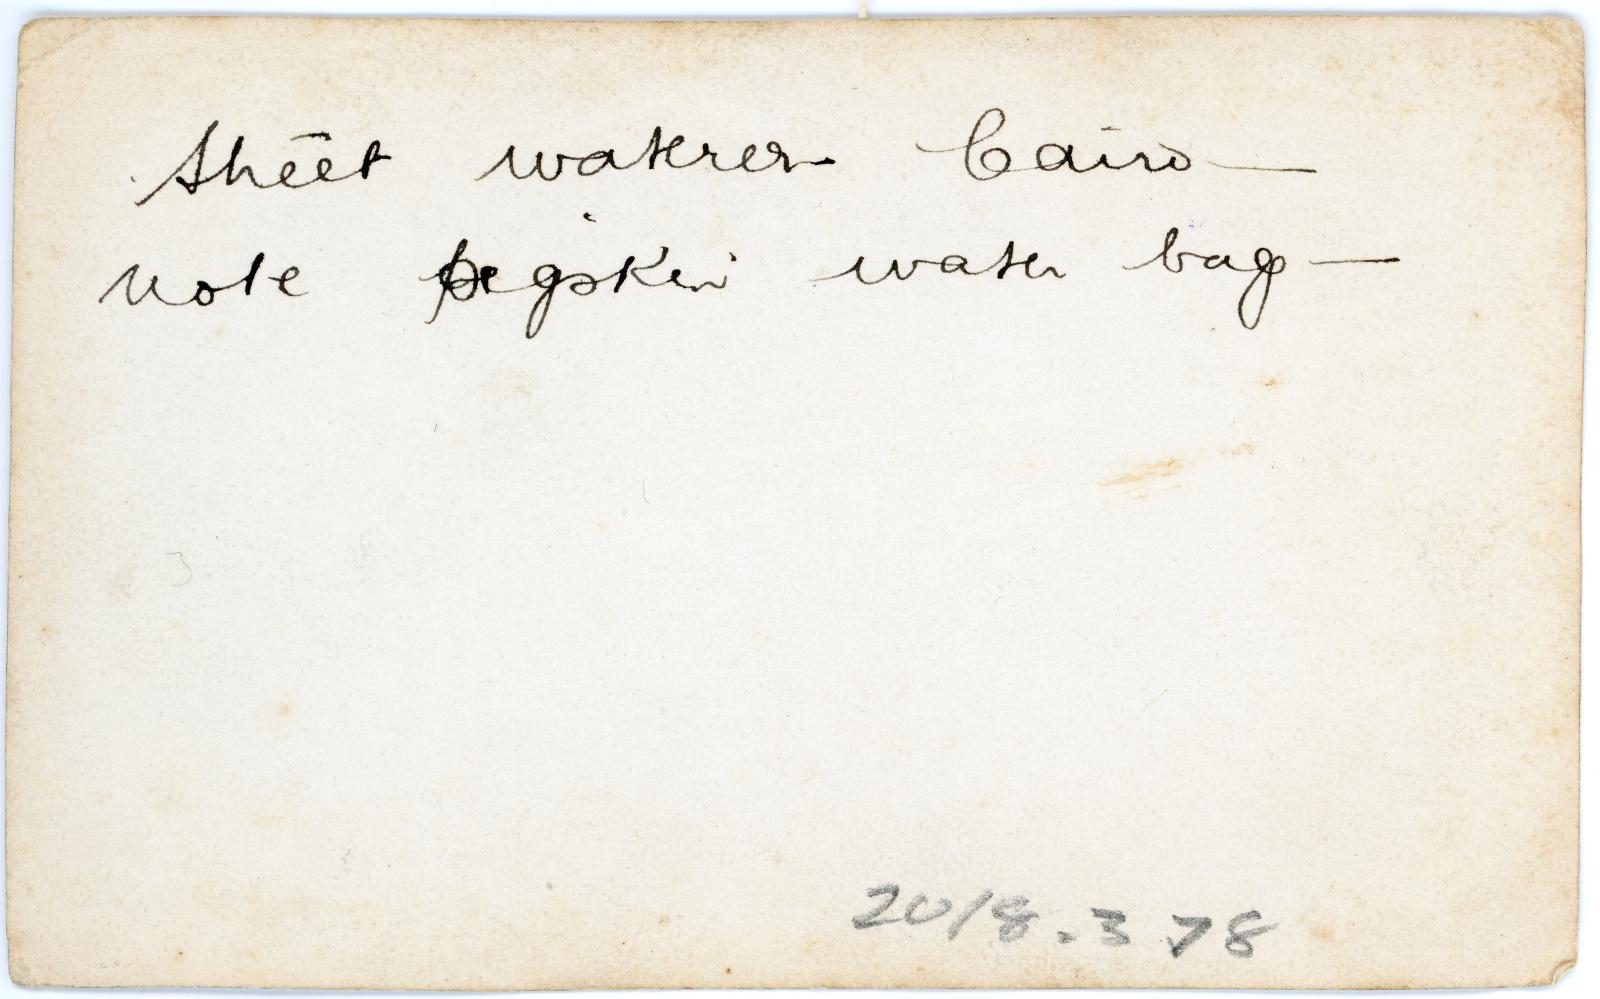 Street waterer Cairo —
note pigskin water bag —
2018.3.78